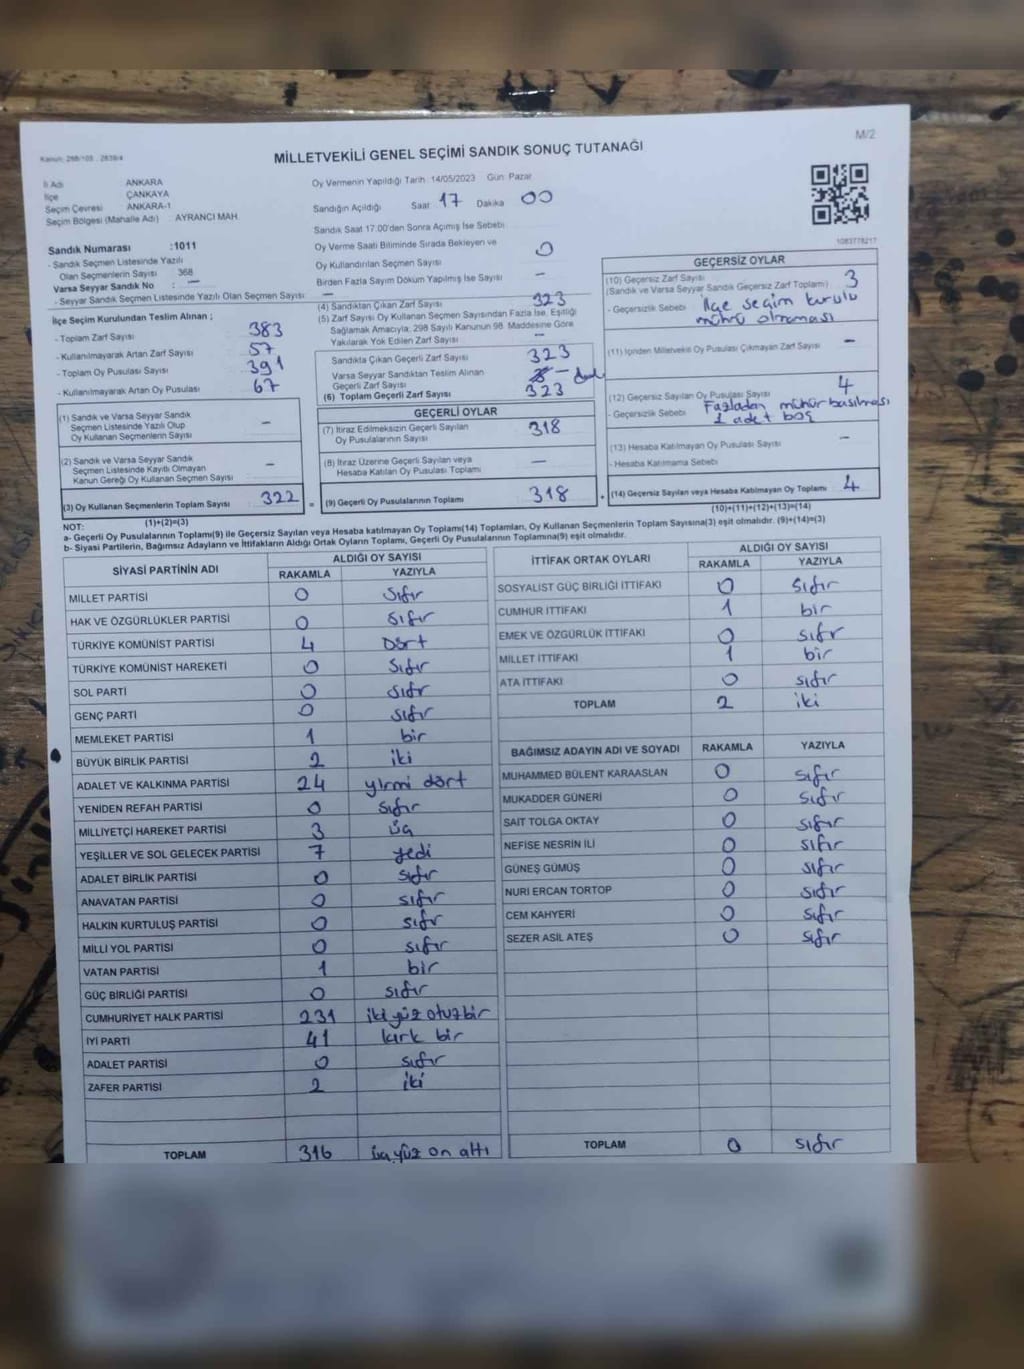 M/2
Kanun: 298/105 , 2839/4
MİLLETVEKİLİ GENEL SEÇİMİ SANDIK SONUÇ TUTANAĞI
İl Adı ANKARA
İlçe ÇANKAYA
Seçim Çevresi ANKARA-1
Seçim Bölgesi (Mahalle Adı) : AYRANCI MAH.
Oy Vermenin Yapıldığı Tarih :14/05/2023 Gün: Pazar
Sandığın Açıldığı Saat: 17 Dakika 00
Sandık Saat 17:00'den Sonra Açımış İse Sebebi
Oy Verme Saati Bitiminde Sırada Bekleyen ve
Oy Kullandırılan Seçmen Sayısı 0
Birden Fazla Sayım Döküm Yapılmış İse Sayısı -
1083778217
Sandık Numarası :1011
- Sandık Seçmen Listesinde Yazılı
Olan Seçmenlerin Sayısı : 368
Varsa Seyyar Sandık No : -
- Seyyar Sandık Seçmen Listesinde Yazılı Olan Seçmen Sayısı: -
İlçe Seçim Kurulundan Teslim Alınan ;
- Toplam Zarf Sayısı 383
- Kullanılmayarak Artan Zarf Sayısı 57
- Toplam Oy Pusulası Sayısı 391
- Kullanılmayarak Artan Oy Pusulası 67
(1) Sandık ve Varsa Seyyar Sandık
Seçmen Listesinde Yazılı Olup
Oy Kullanan Seçmenlerin Sayısı -
(2) Sandık ve Varsa Seyyar Sandık
Seçmen Listesinde Kayıtlı Olmayan
Kanun Gereği Oy Kullanan Seçmen Sayısı -
(3) Oy Kullanan Seçmenlerin Toplam Sayısı 322 =
(1)+(2)=(3)
(4) Sandıktan Çıkan Zarf Sayısı 323
(5) Zarf Sayısı Oy Kullanan Seçmen Sayısından Fazla İse, Eşitliği
Sağlamak Amacıyla; 298 Sayılı Kanunun 98. Maddesine Göre
Yakılarak Yok Edilen Zarf Sayısı -
Sandıkta Çıkan Geçerli Zarf Sayısı 323
Varsa Seyyar Sandıktan Teslim Alınan
Geçerli Zarf Sayısı -
(6) Toplam Geçerli Zarf Sayısı 323
GEÇERLİ OYLAR
(7) İtiraz Edilmeksizin Geçerli Sayılan
Oy Pusulalarının Sayısı 318
(8) İtiraz Üzerine Geçerli Sayılan veya
Hesaba Katılan Oy Pusulası Toplamı -
(9) Geçerli Oy Pusulalarının Toplamı 318 +
GEÇERSİZ OYLAR
(10) Geçersiz Zarf Sayısı 3
(Sandık ve Varsa Seyyar Sandık Geçersiz Zarf Toplamı)
- Geçersizlik Sebebi : ilçe seçim kurulu
mührü olmaması
(11) İçinden Milletvekili Oy Pusulası Çıkmayan Zarf Sayısı -
(12) Geçersiz Sayılan Oy Pusulası Sayısı 4
- Geçersizlik Sebebi : Fazladan mühür basılması
1 adet boş
(13) Hesaba Katılmayan Oy Pusulası Sayısı -
- Hesaba Katılmama Sebebi
(14) Geçersiz Sayılan veya Hesaba Katılmayan Oy Toplamı 4
(10)+(11)+(12)+(13)=(14)
NOT:
a- Geçerli Oy Pusulalarının Toplamı(9) ile Geçersiz Sayılan veya Hesaba katılmayan Oy Toplamı(14) Toplamları, Oy Kullanan Seçmenlerin Toplam Sayısına(3) eşit olmalıdır. (9)+(14)=(3)
b- Siyasi Partilerin, Bağımsız Adayların ve İttifakların Aldığı Ortak Oyların Toplamı, Geçerli Oy Pusulalarının Toplamına(9) eşit olmalıdır.
SİYASİ PARTİNİN ADI ALDIĞI OY SAYISI
RAKAMLA YAZIYLA
MİLLET PARTİSİ 0 Sıfır
HAK VE ÖZGÜRLÜKLER PARTİSİ 0 Sıfır
TÜRKİYE KOMÜNİST PARTİSİ 4 Dört
TÜRKİYE KOMÜNİST HAREKETİ 0 Sıfır
SOL PARTİ 0 Sıfır
GENÇ PARTİ 0 sıfır
MEMLEKET PARTİSİ 1 bir
BÜYÜK BİRLİK PARTİSİ 2 iki
ADALET VE KALKINMA PARTİSİ 24 yirmi dört
YENİDEN REFAH PARTİSİ 0 sıfır
MİLLİYETÇİ HAREKET PARTİSİ 3 üç
YEŞİLLER VE SOL GELECEK PARTİSİ 7 yedi
ADALET BİRLİK PARTİSİ 0 sıfır
ANAVATAN PARTİSİ 0 sıfır
HALKIN KURTULUŞ PARTİSİ 0 sıfır
MİLLİ YOL PARTİSİ 0 sıfır
VATAN PARTİSİ 1 bir
GÜÇ BİRLİĞİ PARTİSİ 0 sıfır
CUMHURİYET HALK PARTİSİ 231 ikiyüz otuzbir
İYİ PARTİ 41 kırk bir
ADALET PARTİSİ 0 sıfır
ZAFER PARTİSİ 2 iki
TOPLAM 316 üçyüz on altı
İTTİFAK ORTAK OYLARI ALDIĞI OY SAYISI
RAKAMLA YAZIYLA
SOSYALİST GÜÇ BİRLİĞİ İTTİFAKI 0 sıfır
CUMHUR İTTİFAKI 1 bir
EMEK VE ÖZGÜRLÜK İTTİFAKI 0 sıfır
MİLLET İTTİFAKI 1 bir
ATA İTTİFAKI 0 sıfır
TOPLAM 2 iki
BAĞIMSIZ ADAYIN ADI VE SOYADI RAKAMLA YAZIYLA
MUHAMMED BÜLENT KARAASLAN 0 sıfır
MUKADDER GÜNERİ 0 sıfır
SAİT TOLGA OKTAY 0 sıfır
NEFİSE NESRİN İLİ 0 sıfır
GÜNEŞ GÜMÜŞ 0 sıfır
NURİ ERCAN TORTOP 0 sıfır
CEM KAHYERİ 0 sıfır
SEZER ASİL ATEŞ 0 sıfır
TOPLAM 0 sıfır